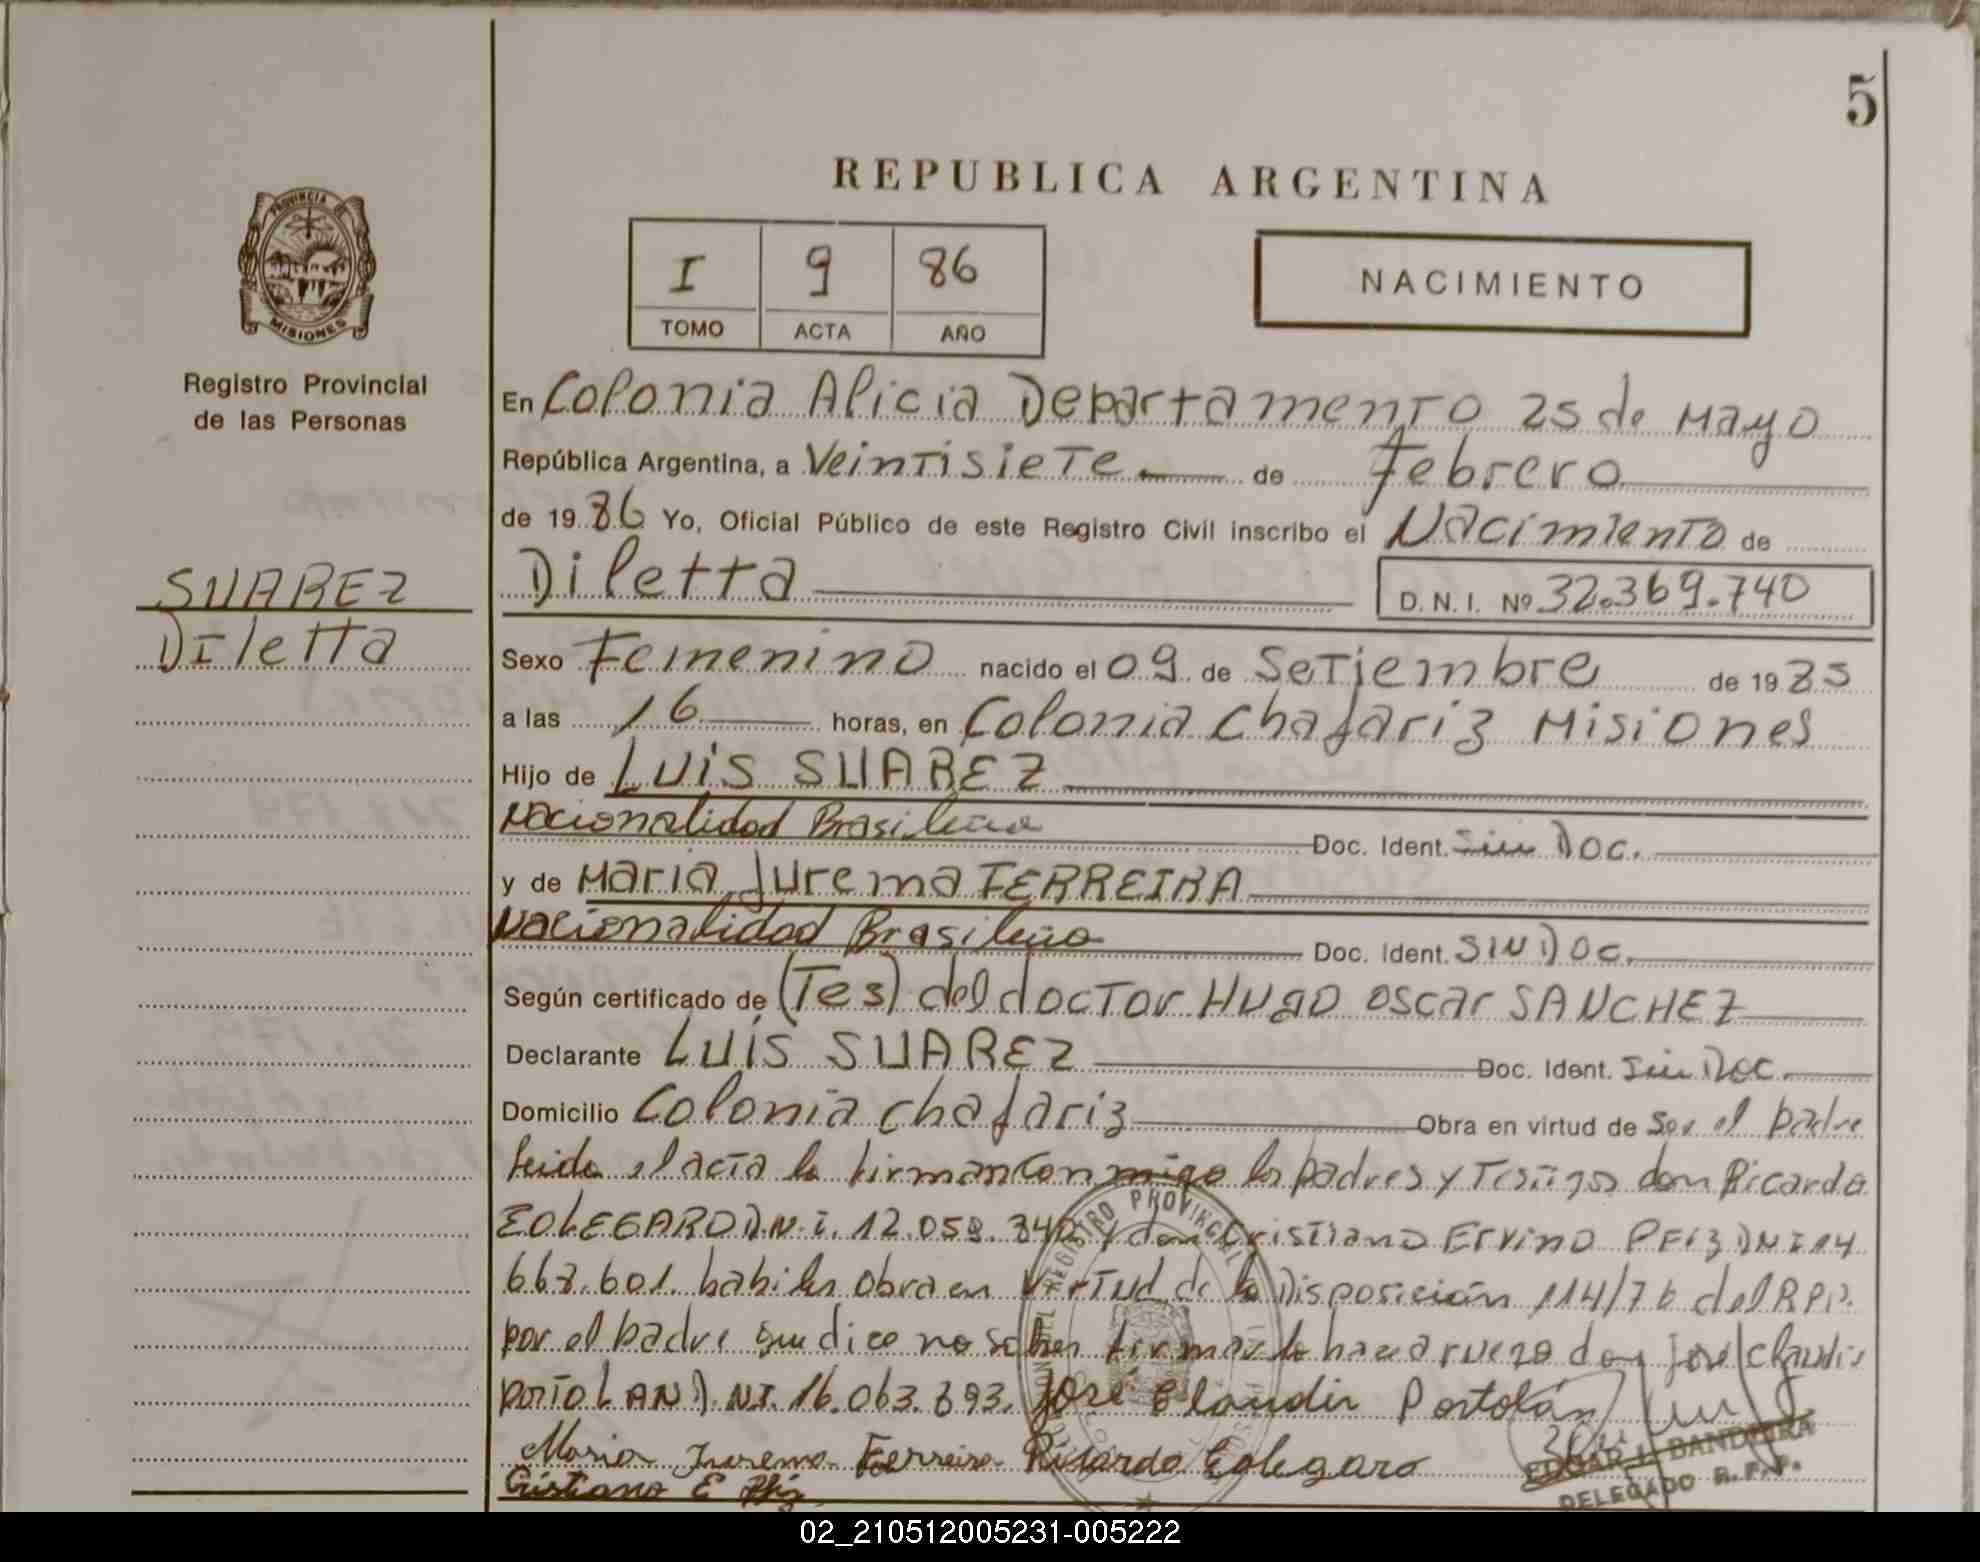 5
REPUBLICA ARGENTINA
PROVINCIA DE
MISIONES
Registro Provincial
de las Personas
I 9 86
TOMO ACTA AÑO
NACIMIENTO
SUAREZ
Diletta
En Colonia Alicia Departamento 25 de Mayo
República Argentina, a Veintisiete de febrero
de 1986 Yo, Oficial Público de este Registro Civil inscribo el Nacimiento de
Diletta
D.N.I. Nº 32.369.740
Sexo Femenino nacido el 09 de Setiembre de 1985
a las 16 horas, en Colonia Chafariz Misiones
Hijo de LUIS SUAREZ
Nacionalidad Brasileña Doc. Ident. Sin Doc.
y de Maria Jurema FERREIRA
Nacionalidad Brasileña Doc. Ident. SIN Doc.
Según certificado de (Tes) del doctor Hugo Oscar SANCHEZ
Declarante LUIS SUAREZ Doc. Ident. Sin Doc.
Domicilio Colonia Chafariz Obra en virtud de Ser el padre
leida el acta la firman conmigo los padres y Testigos don Ricardo
EOLEGARO D.N.I. 12.059.340 y don Cristiano Ervino PFIZ DNI 14
668.601. habiles Obra en Virtud de la Disposición 114/76 del R.P.P.
por el padre que dice no saber firmar lo hace a ruego don José Claudir
PORTOLAN D.N.I. 16.063.893. José Claudir Portolán
Maria Jurema Ferreira Ricardo Eolegaro
Cristiano E Pfiz
EDGAR I. BANDIERA
DELEGADO R.P.P.
REGISTRO PROVINCIAL
02_210512005231-005222